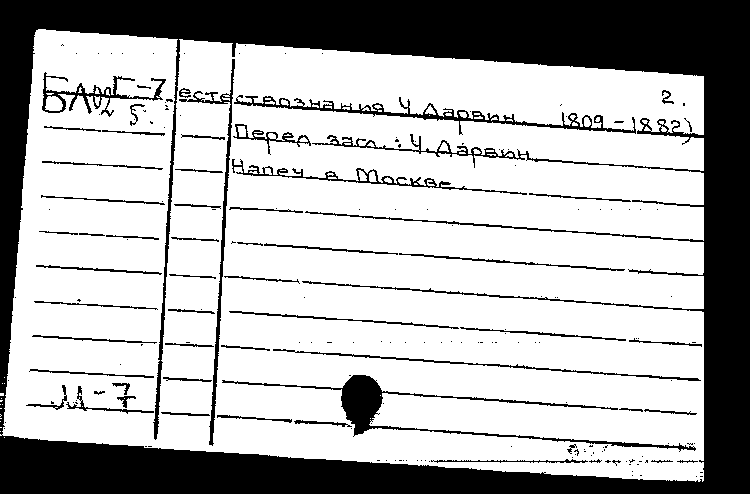 2.
Г-7 естествознания Ч. Дарвин. 1809-1882)
5.
Перед загл.: Ч. Дарвин.
Напеч. в Москве.
М-7